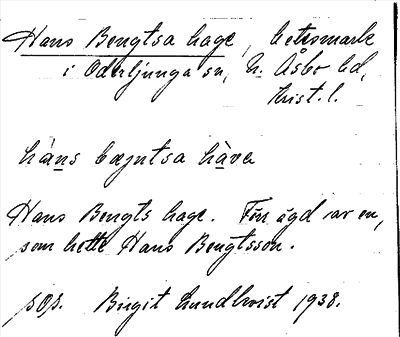 Hans Bengtsa hage, betesmark
i Oderljunga sn, N. Åsbo hd,
Krist. l.
hàns bæjntsa hàva
Hans Bengts hage. Förr ägd av en,
som hette Hans Bengtsson.
pop. Birgit Lundkvist 1938.